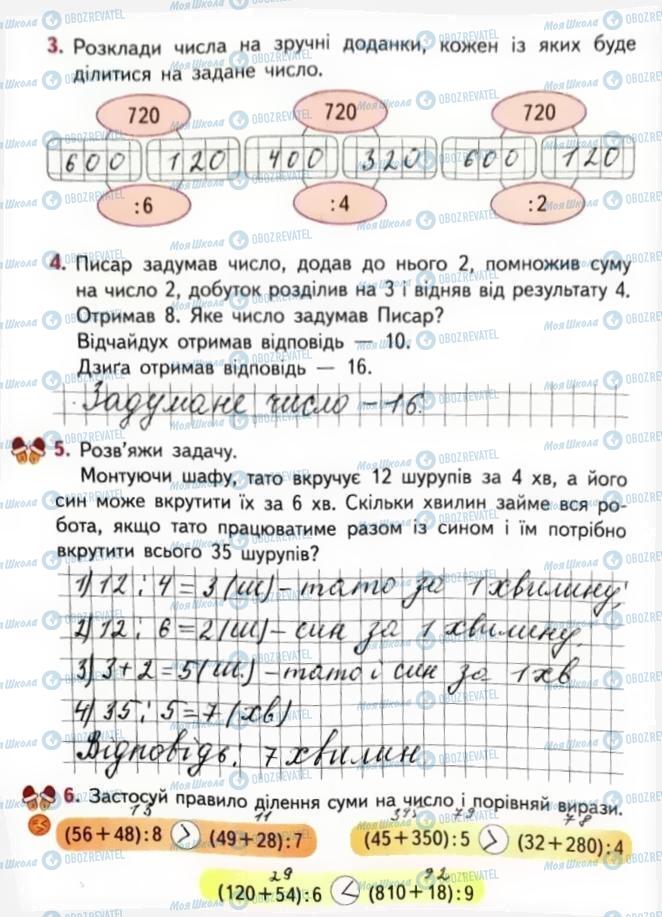 3. Розклади числа на зручні доданки, кожен із яких буде
ділитися на задане число.
720 720 720
600 120 400 320 600 120
:6 :4 :2
4. Писар задумав число, додав до нього 2, помножив суму
на число 2, добуток розділив на 3 і відняв від результату 4.
Отримав 8. Яке число задумав Писар?
Відчайдух отримав відповідь — 10.
Дзиґа отримав відповідь — 16.
Задумане число – 16.
5. Розв'яжи задачу.
Монтуючи шафу, тато вкручує 12 шурупів за 4 хв, а його
син може вкрутити їх за 6 хв. Скільки хвилин займе вся ро-
бота, якщо тато працюватиме разом із сином і їм потрібно
вкрутити всього 35 шурупів?
1) 12 : 4 = 3 (ш) – тато за 1 хвилину;
2) 12 : 6 = 2 (ш) – син за 1 хвилину.
3) 3 + 2 = 5 (ш.) – тато і син за 1 хв
4) 35 : 5 = 7 (хв)
Відповідь: 7 хвилин
6. Застосуй правило ділення суми на число і порівняй вирази.
13 11 79 78
(56+48):8 > (49+28):7 (45+350):5 > (32+280):4
29 92
(120+54):6 < (810+18):9